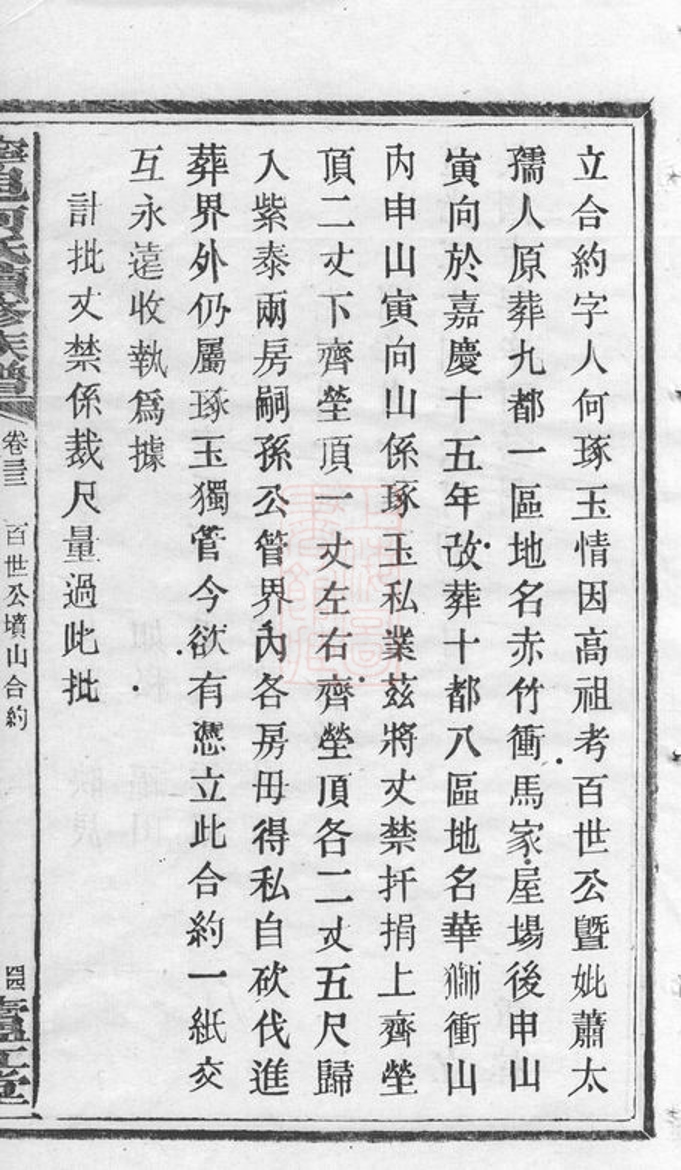 立合約字人何琢玉情因高祖考百世公曁妣蕭太
孺人原葬九都一區地名赤竹衝馬家屋場後申山
寅向於嘉慶十五年改葬十都八區地名華獅衝山
內申山寅向山係琢玉私業茲將丈禁扦捐上齊塋
頂二丈下齊塋頂一丈左右齊塋頂各二丈五尺歸
入紫泰兩房嗣孫公管界內各房毋得私自砍伐進
葬界外仍屬琢玉獨管今欲有憑立此合約一紙交
互永遠收執爲據
計批丈禁係裁尺量過此批
何氏續修族譜
卷三三
百世公墳山合約